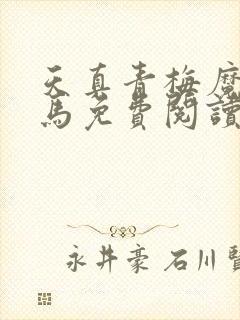 天真青梅魔
馬免費閱讀
永井豪 石川賢